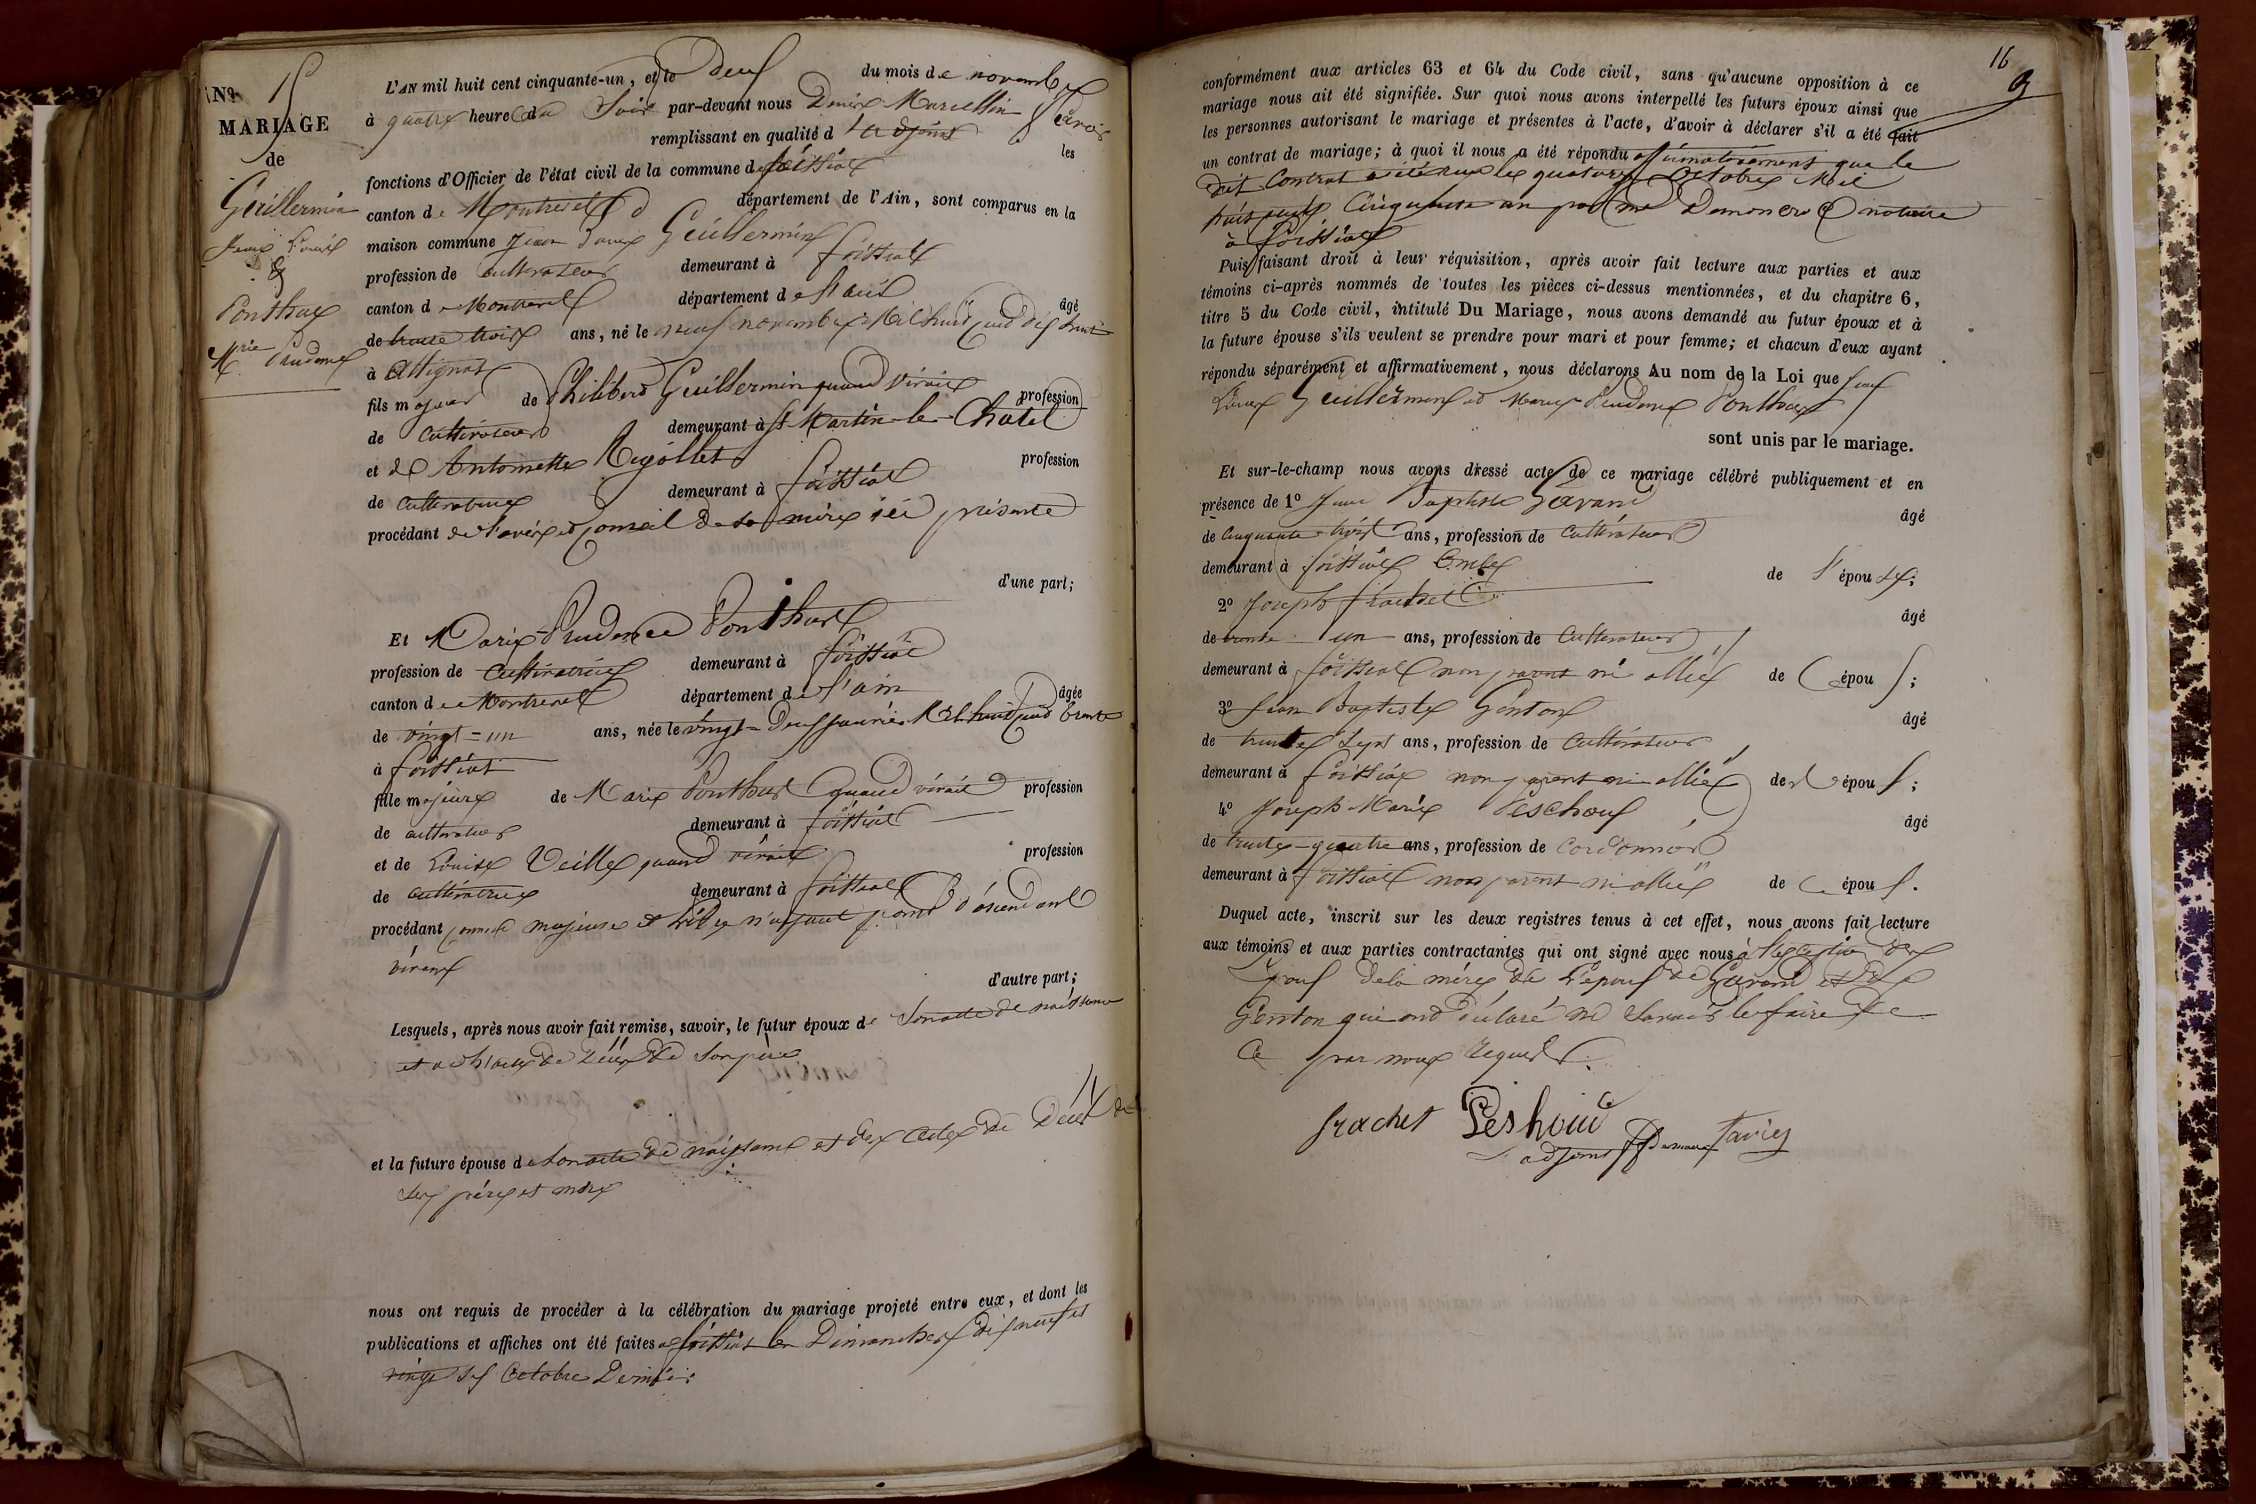 No 15
MARIAGE
de
Guillermin
Jean Louis
&
Ponthus
Mrie Prudence
L'AN mil huit cent cinquante-un, et le deux du mois de novembre
à quatre heure du Soir par-devant nous Denis Marcellin
remplissant en qualité d'adjoint les
fonctions d'Officier de l'état civil de la commune de foissiat
canton de Montrevel département de l'Ain, sont comparus en la
maison commune Jean Louis Guillermin
profession de cultivateur demeurant à foissiat
canton de Montrevel département de l'ain âgé
de trente trois ans, né le neuf novembre Mil huit cent dix huit
à Attignat
fils majeur de Philibert Guillermin quand vivait profession
de cultivateur demeurant à St Martin-le-Châtel
et de Antoinette Rigollet profession
de cultivatrice demeurant à foissiat
procédant de l'avis et conseil de sa mère ici présente
d'une part;
Et Marie Prudence Ponthus
profession de cultivatrice demeurant à foissiat
canton de Montrevel département de l'ain âgée
de vingt=un ans, née le vingt=Deux janvier Mil huit cent trente
à foissiat
fille majeure de Marie Ponthus quand vivait profession
de cultivateur demeurant à foissiat
et de Louise Veille quand vivait profession
de cultivatrice demeurant à foissiat
procédant comme majeure et libre n'ayant point d'ascendant
vivant
d'autre part;
Lesquels, après nous avoir fait remise, savoir, le futur époux de son acte de naissance
et de l'acte de décès de son père
et la future épouse de son acte de naissance et des actes de décès de
ses père et mère
nous ont requis de procéder à la célébration du mariage projeté entre eux, et dont les
publications et affiches ont été faites à foissiat les Dimanches dix neuf et
vingt six octobre Dernier
16
conformément aux articles 63 et 64 du Code civil, sans qu'aucune opposition à ce
mariage nous ait été signifiée. Sur quoi nous avons interpellé les futurs époux ainsi que
les personnes autorisant le mariage et présentes à l'acte, d'avoir à déclarer s'il a été fait
un contrat de mariage; à quoi il nous a été répondu affirmativement que le
dit Contrat a été reçu le quatorze octobre Mil
huit cent Cinquante un par me notaire
à foissiat
Puis faisant droit à leur réquisition, après avoir fait lecture aux parties et aux
témoins ci-après nommés de toutes les pièces ci-dessus mentionnées, et du chapitre 6,
titre 5 du Code civil, intitulé Du Mariage, nous avons demandé au futur époux et à
la future épouse s'ils veulent se prendre pour mari et pour femme; et chacun d'eux ayant
répondu séparément et affirmativement, nous déclarons Au nom de la Loi que Jean
Louis Guillermin et Marie Prudence Ponthus
sont unis par le mariage.
Et sur-le-champ nous avons dressé acte de ce mariage célébré publiquement et en
présence de 1o Jean Baptiste Gavand âgé
de cinquante-trois ans, profession de cultivateur
demeurant à foissiat oncle de l'épouse;
2o Joseph frachet âgé
de trente un ans, profession de cultivateur
demeurant à foissiat non parent ni allié de épou ;
3o Jean Baptiste Genton âgé
de trente sept ans, profession de cultivateur
demeurant à foissiat non parent ni allié de épou ;
4o Joseph Marie Peschoux âgé
de trente-quatre ans, profession de cordonnier
demeurant à foissiat non parent ni allié de épou .
Duquel acte, inscrit sur les deux registres tenus à cet effet, nous avons fait lecture
aux témoins et aux parties contractantes qui ont signé avec nous à l'exception des
Epoux de la mère de l'époux de Gavand et de
Genton qui ont déclaré ne savoir le faire de
ce par nous requis.
frachet Peshoud
adjoint